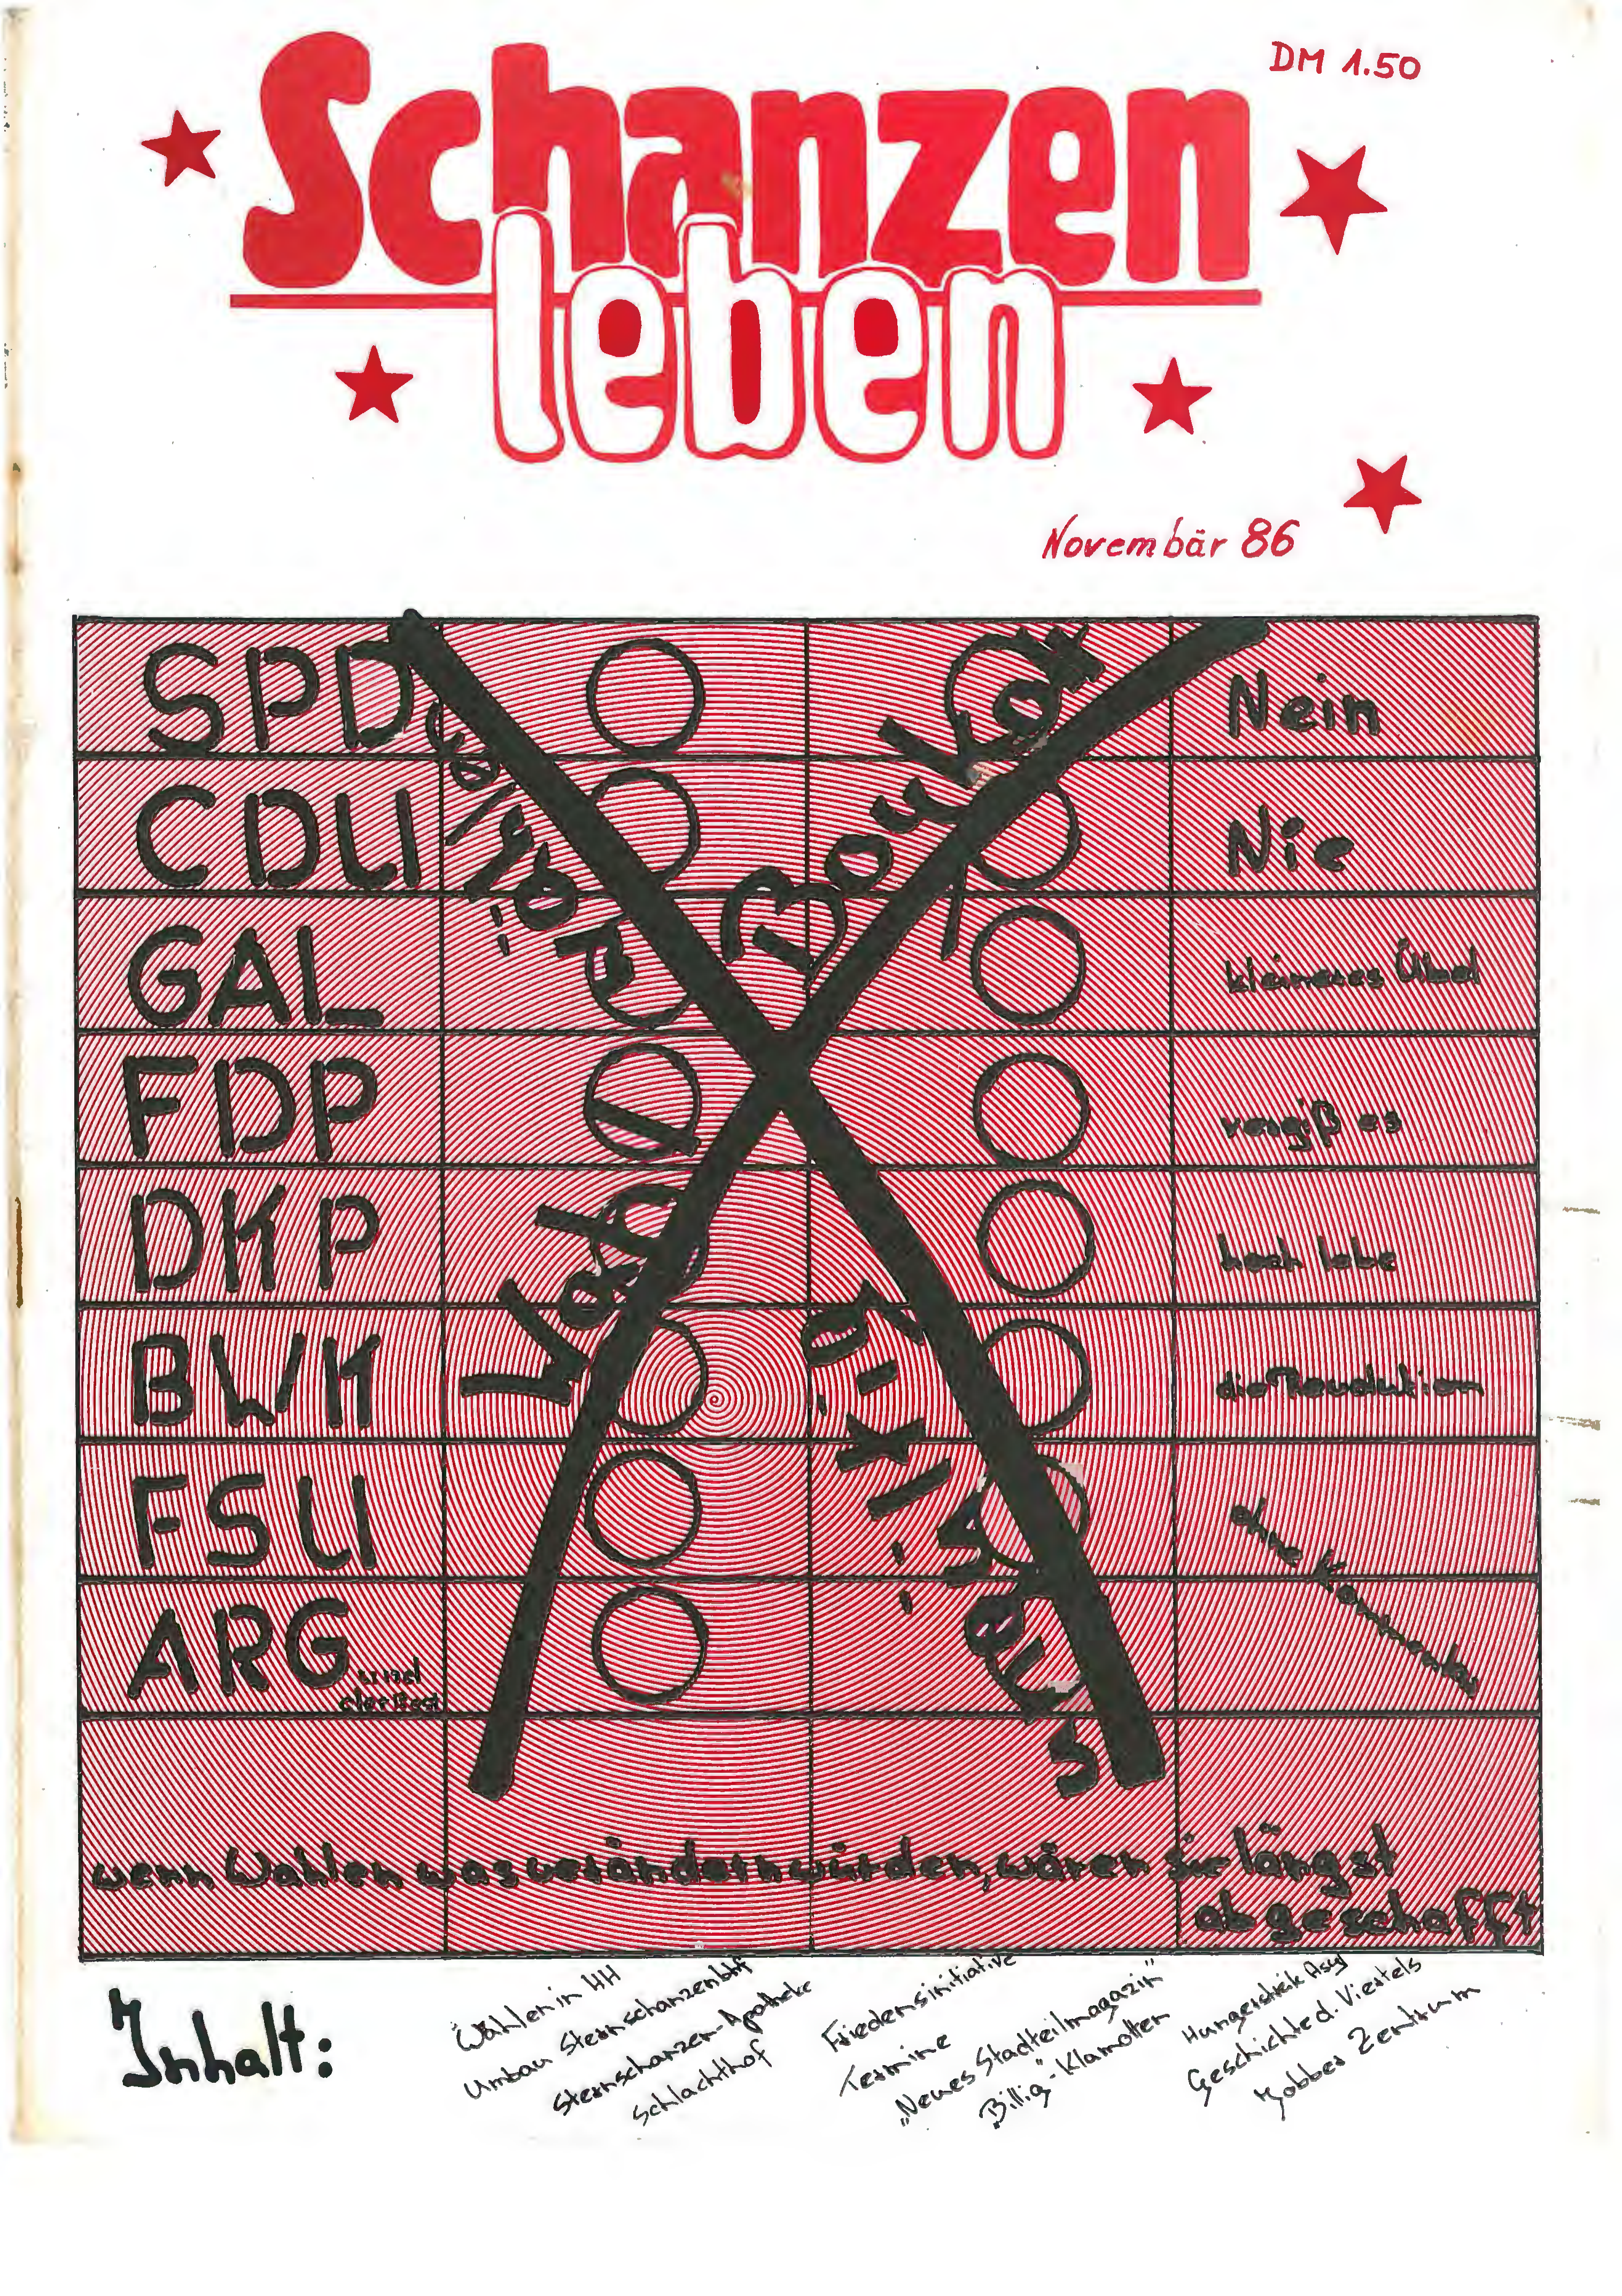 DM 1.50
Schanzen
leben
Novembär 86
SPD
Nein
CDU
Nie
GAL
kleineres Übel
FDP
vergiß es
DKP
hoch lebe
BWK
die Revolution
FSU
ohne Kommentar
ARG und
der Rest
Boykott
Wahl
wenn Wahlen was verändern würden, wären sie längst
abgeschafft
Inhalt:
Wahlen in HH
Umbau Sternschanzenbhf
Sternschanzen-Apotheke
Schlachthof
Friedensinitiative
Termine
„Neues Stadtteilmagazin"
„Billig"-Klamotten
Hungerstreik Asyl
Geschichte d. Viertels
Jobber Zentrum